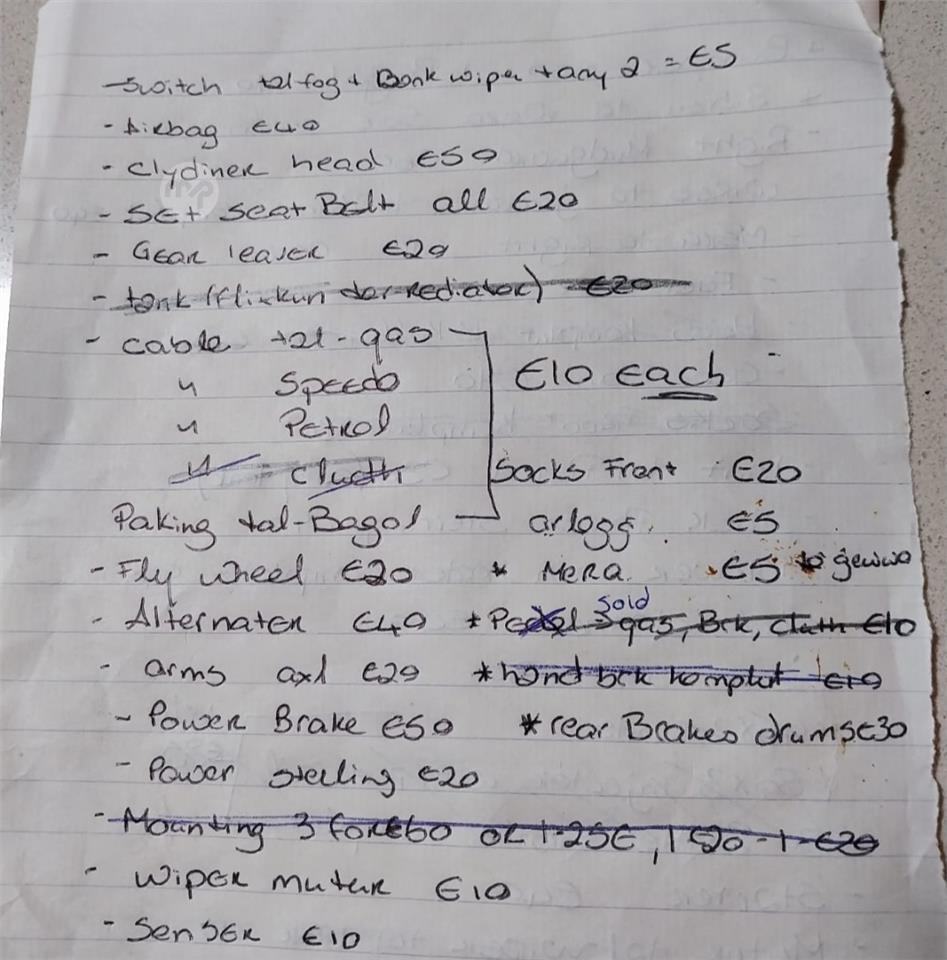 - Switch tal fog + Bonk wiper + any 2 = €5
- Airbag €40
- Clydiner head €50
- SEt Seat Belt all €20
- GEAR leaver €20
- tank (flixkun dar-rediator) €20
- cable tal-gas
" SpEEdo €10 each
" PEtrol
" - cluth Socks Front €20
Paking tal-Bagol arloggʻ €5
- Fly wheel €20 * MERA €5 ta' ġewwa
sold
- Alternater €40 * Pedel gas, Brk, cluth €10
- arms axl €20 * hand brk komplut €10
- Power Brake €50 * rear Brakes drums €30
- Power steeling €20
- Mounting 3 for €60 or 1-25€, 1 €20 - 1 - €20
- wiper mutur €10
- SENSER €10